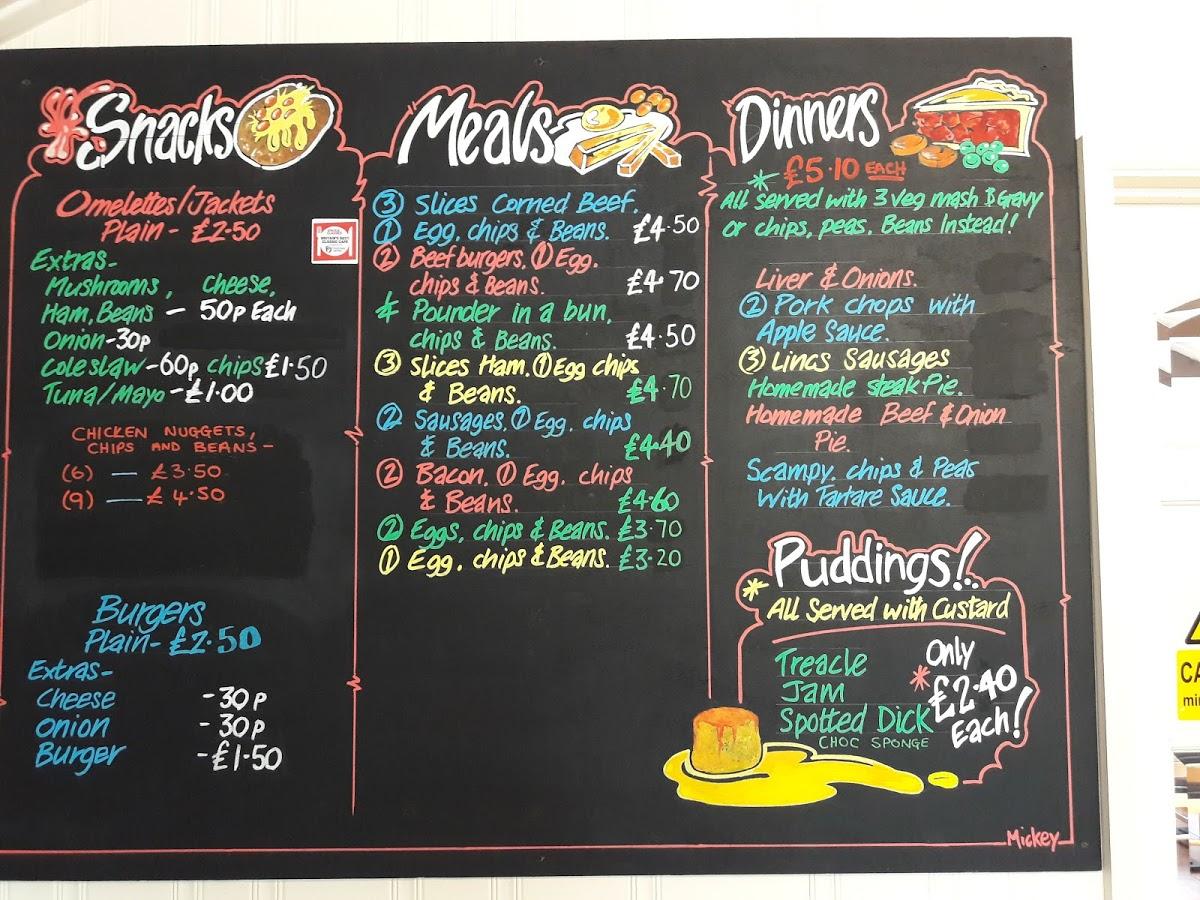 Snacks
Omelettes/Jackets
Plain - £2.50
Extras-
Mushrooms, Cheese,
Ham, Beans - 50p Each
Onion-30p
Coleslaw-60p chips £1.50
Tuna/Mayo-£1.00
CHICKEN NUGGETS,
CHIPS AND BEANS-
(6) - £3.50
(9) - £4.50
Burgers
Plain- £2.50
Extras-
Cheese -30p
Onion -30p
Burger -£1.50
Meals
③ Slices Corned Beef.
① Egg, chips & Beans. £4.50
② Beefburgers, ① Egg.
chips & Beans. £4.70
¼ Pounder in a bun,
chips & Beans. £4.50
③ Slices Ham. ① Egg chips
& Beans. £4.70
② Sausages, ① Egg. chips
& Beans. £4.40
② Bacon. ① Egg. chips
& Beans. £4.60
② Eggs, chips & Beans. £3.70
① Egg. chips & Beans. £3.20
Dinners
£5.10 EACH
* All served with 3 veg mash & Gravy
or chips, peas, Beans Instead!
Liver & Onions.
② Pork chops with
Apple Sauce.
③ Lincs Sausages
Homemade steak Pie.
Homemade Beef & Onion
Pie.
Scampy, chips & Peas
With Tartare Sauce.
Puddings!
* All Served with Custard
Treacle
Jam
Spotted Dick
CHOC SPONGE
Only
* £2.40
Each!
Mickey
CA
min